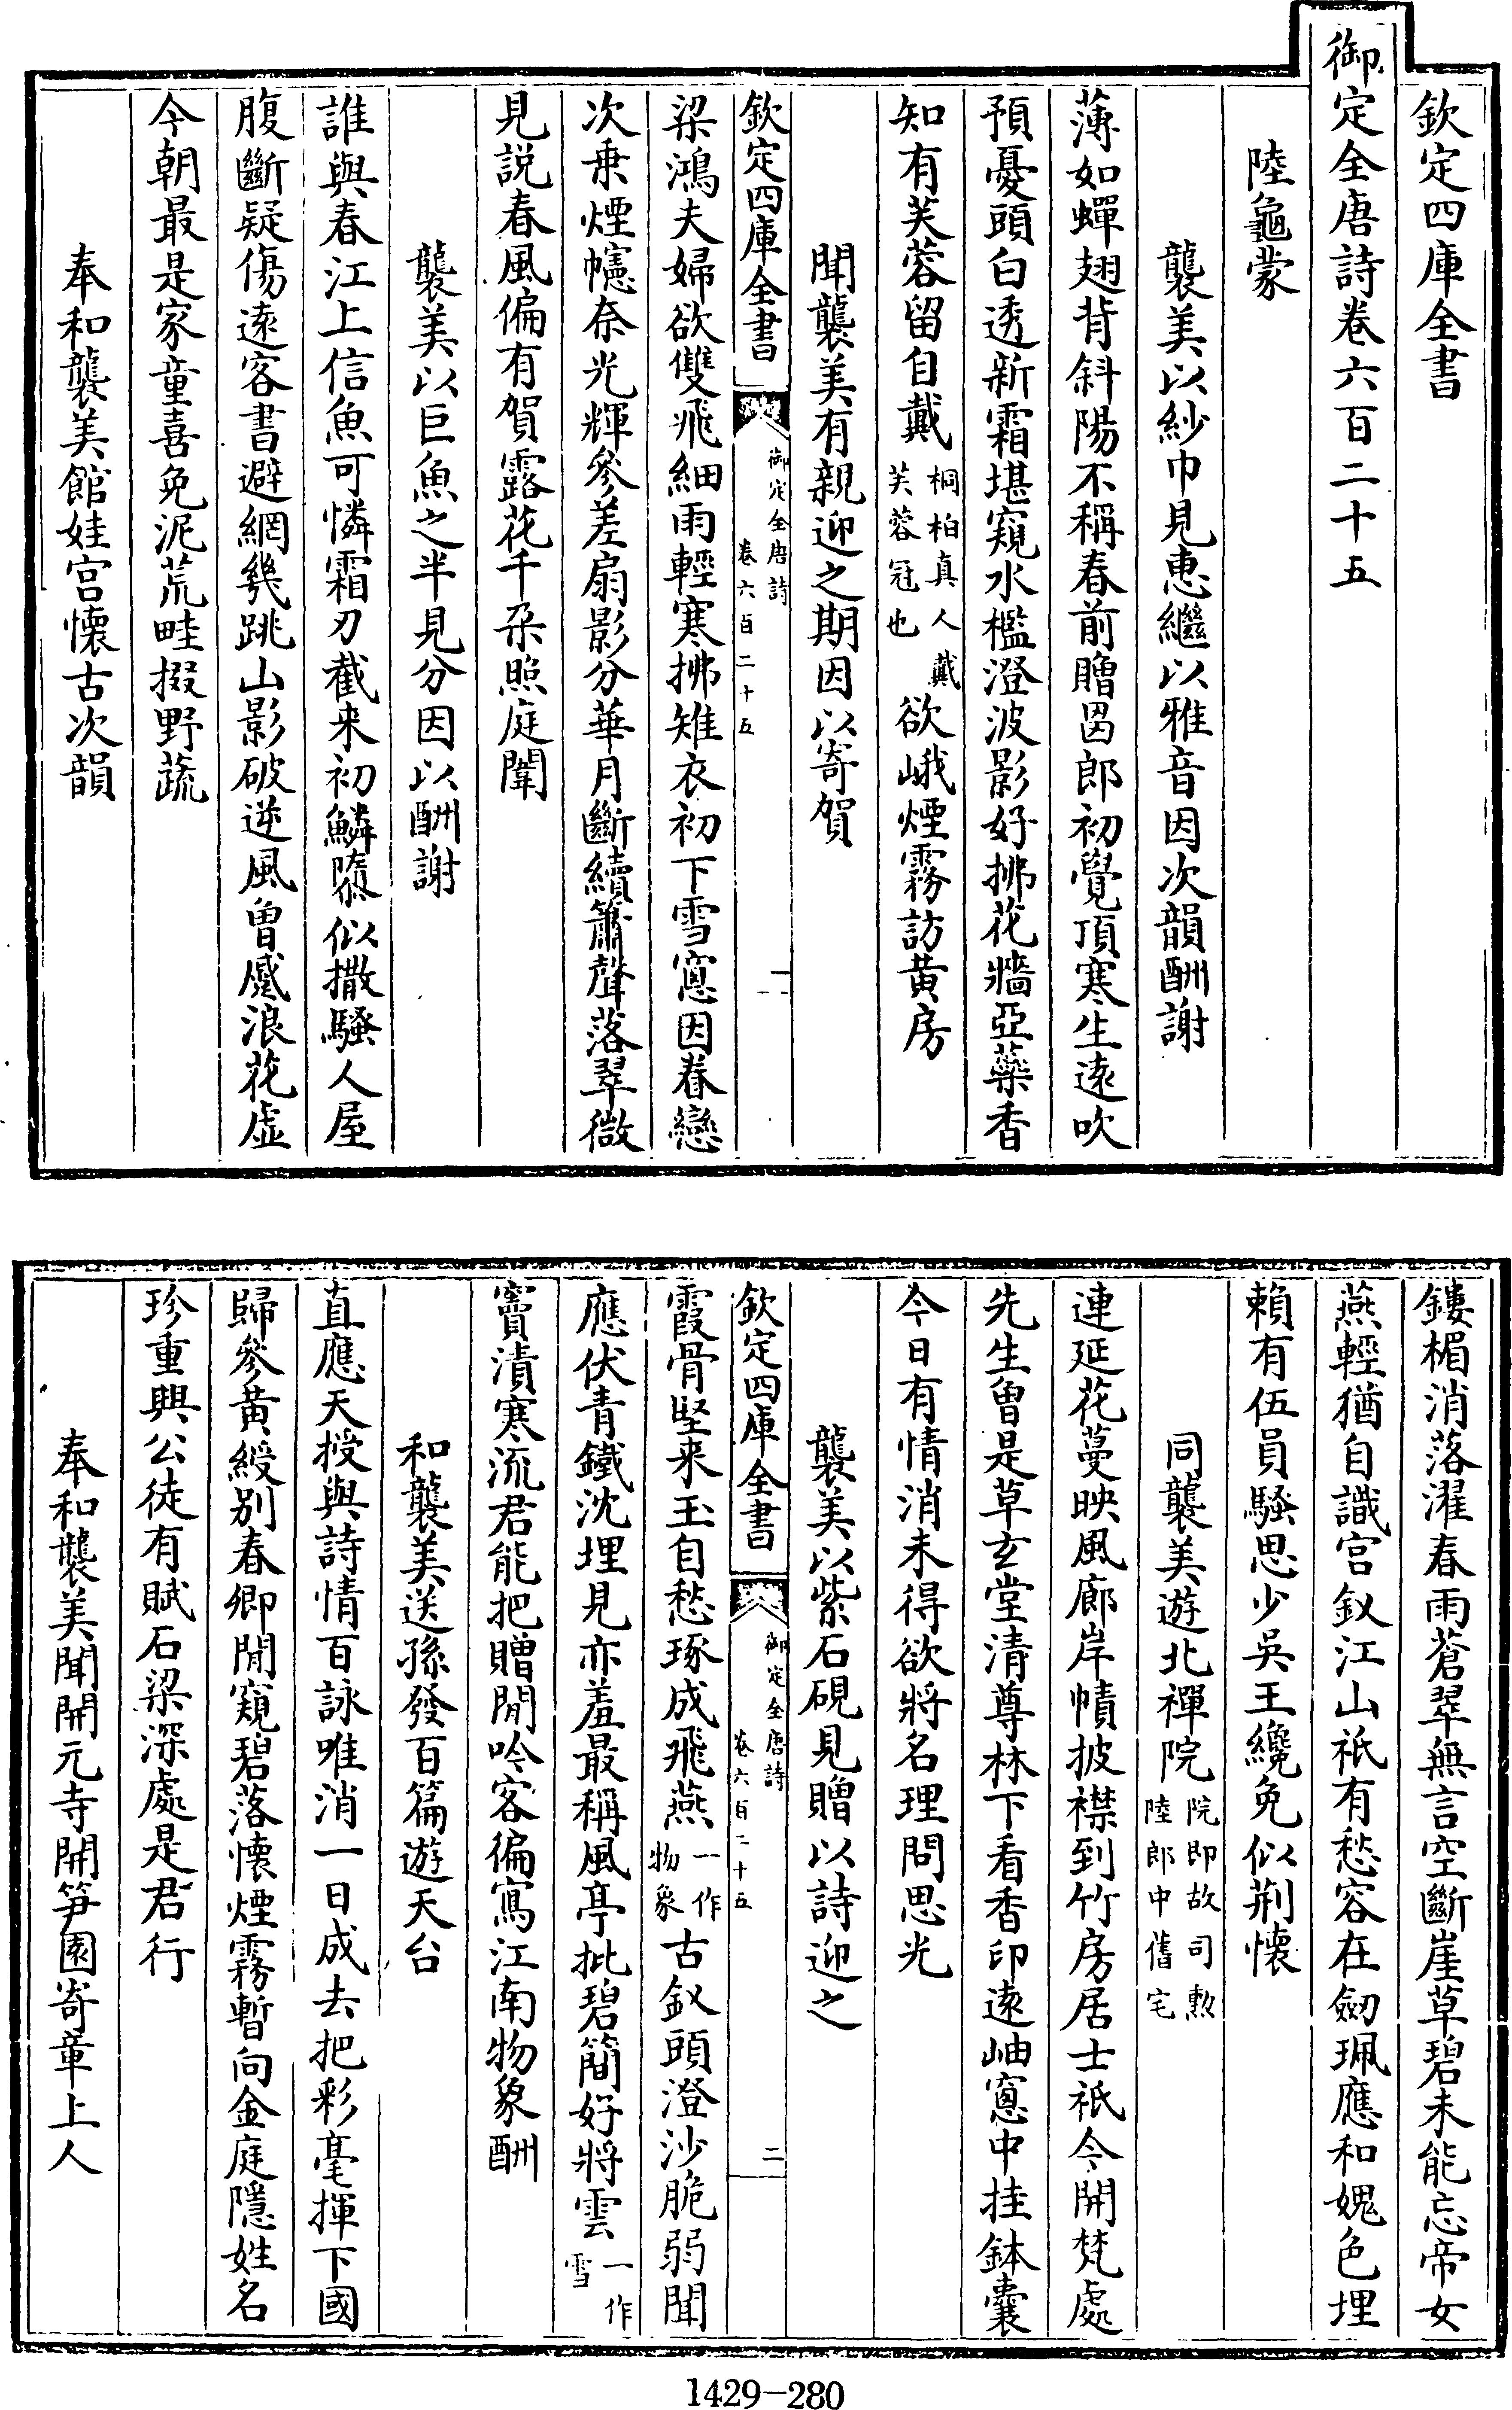 欽定四庫全書
御定全唐詩卷六百二十五
陸龜蒙
襲美以紗巾見惠繼以雅音因次韻酬謝
薄如蟬翅背斜陽不稱春前贈罟郎初覺頂寒生遠吹
預憂頭白透新霜堪窺水檻澄波影好拂花牆亞藥香
知有芙蓉留自戴桐柏真人戴芙蓉冠也欲峨煙霧訪黄房
聞襲美有親迎之期因以寄賀
欽定四庫全書 御定全唐詩卷六百二十五 一
梁鴻夫婦欲雙飛細雨輕寒拂雉衣初下雪窻因眷戀
次乗煙幰奈光輝參差扇影分華月斷續簫聲落翠微
見説春風偏有賀露花千朶照庭闈
襲美以巨魚之半見分因以酬謝
誰與春江上信魚可憐霜刃截来初鱗隳似撒騷人屋
腹斷疑傷逺客書避網幾跳山影破逆風曾蹙浪花虚
今朝最是家童喜免泥荒畦掇野蔬
奉和襲美館娃宫懷古次韻
鏤楣消落濯春雨蒼翠無言空斷崖草碧未能忘帝女
燕輕猶自識宫釵江山祇有愁容在劒珮應和媿色埋
賴有伍員騷思少吳王纔免似荆懷
同襲美遊北禪院院即故司勲陸郎中舊宅
連延花蔓映風廊岸幘披襟到竹房居士祇今開梵處
先生曾是草玄堂清尊林下看香印逺岫窻中挂鉢囊
今日有情消未得欲將名理問思光
襲美以紫石硯見贈以詩迎之
欽定四庫全書 御定全唐詩卷六百二十五 二
霞骨堅来玉自愁琢成飛燕一作物象古釵頭澄沙脆弱聞
應伏青鐵沈埋見亦羞最稱風亭批碧簡好將雲一作雪
竇漬寒流君能把贈閒吟客徧寫江南物象酬
和襲美送孫發百篇遊天台
直應天授與詩情百詠唯消一日成去把彩毫揮下國
歸參黄綬别春卿閒窺碧落懷煙霧暫向金庭隱姓名
珍重興公徒有賦石梁深處是君行
奉和襲美聞開元寺開笋園寄章上人
1429-280